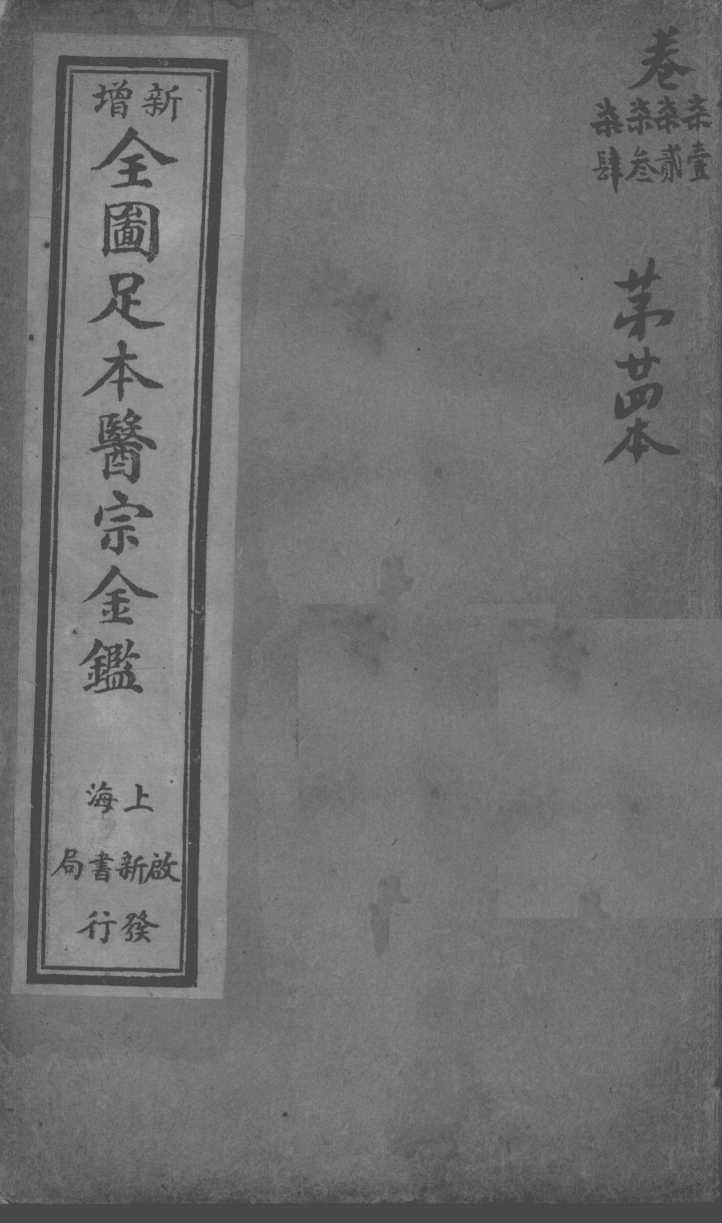 卷
柒壹
柒貳
柒叁
柒肆
苐廿四本
新增
全圖足本醫宗金鑑
上海
啟新書局
發行